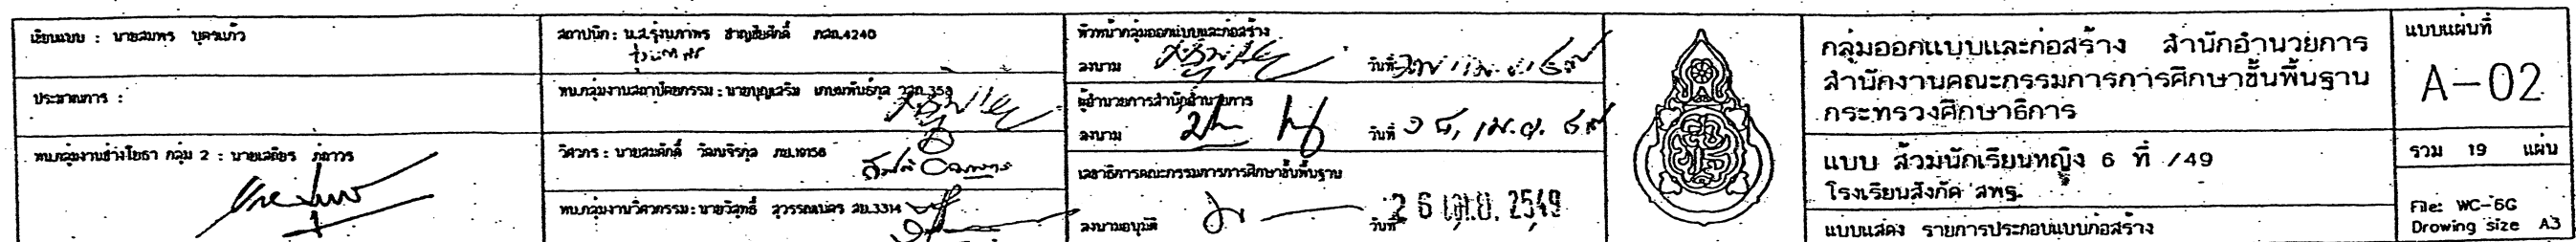 เขียนแบบ : นายสมพร บุตรแก้ว
ประมาณการ :
หน.กลุ่มงานช่างโยธา กลุ่ม 2 : นายเสถียร ภู่ถาวร
สถาปนิก : น.ส.รุ่งนภาพร ชาญชัยศักดิ์ ภสถ.4240
หน.กลุ่มงานสถาปัตยกรรม : นายบุญเสริม เกษมพันธ์กุล
วิศวกร : นายสมศักดิ์ วัฒนจิรกุล ภย.19156
หน.กลุ่มงานวิศวกรรม : นายวิสุทธิ์ สุวรรณเนตร สย.3314
หัวหน้ากลุ่มออกแบบและก่อสร้าง
ลงนาม วันที่
ผู้อำนวยการสำนักอำนวยการ
ลงนาม วันที่
เลขาธิการคณะกรรมการการศึกษาขั้นพื้นฐาน
ลงนามอนุมัติ วันที่ 26 เม.ย. 2549
กลุ่มออกแบบและก่อสร้าง สำนักอำนวยการ
สำนักงานคณะกรรมการการศึกษาขั้นพื้นฐาน
กระทรวงศึกษาธิการ
แบบ ส้วมนักเรียนหญิง 6 ที่ /49
โรงเรียนสังกัด สพฐ.
แบบแสดง รายการประกอบแบบก่อสร้าง
แบบแผ่นที่
A-02
รวม 19 แผ่น
File: WC-6G
Drowing size A3